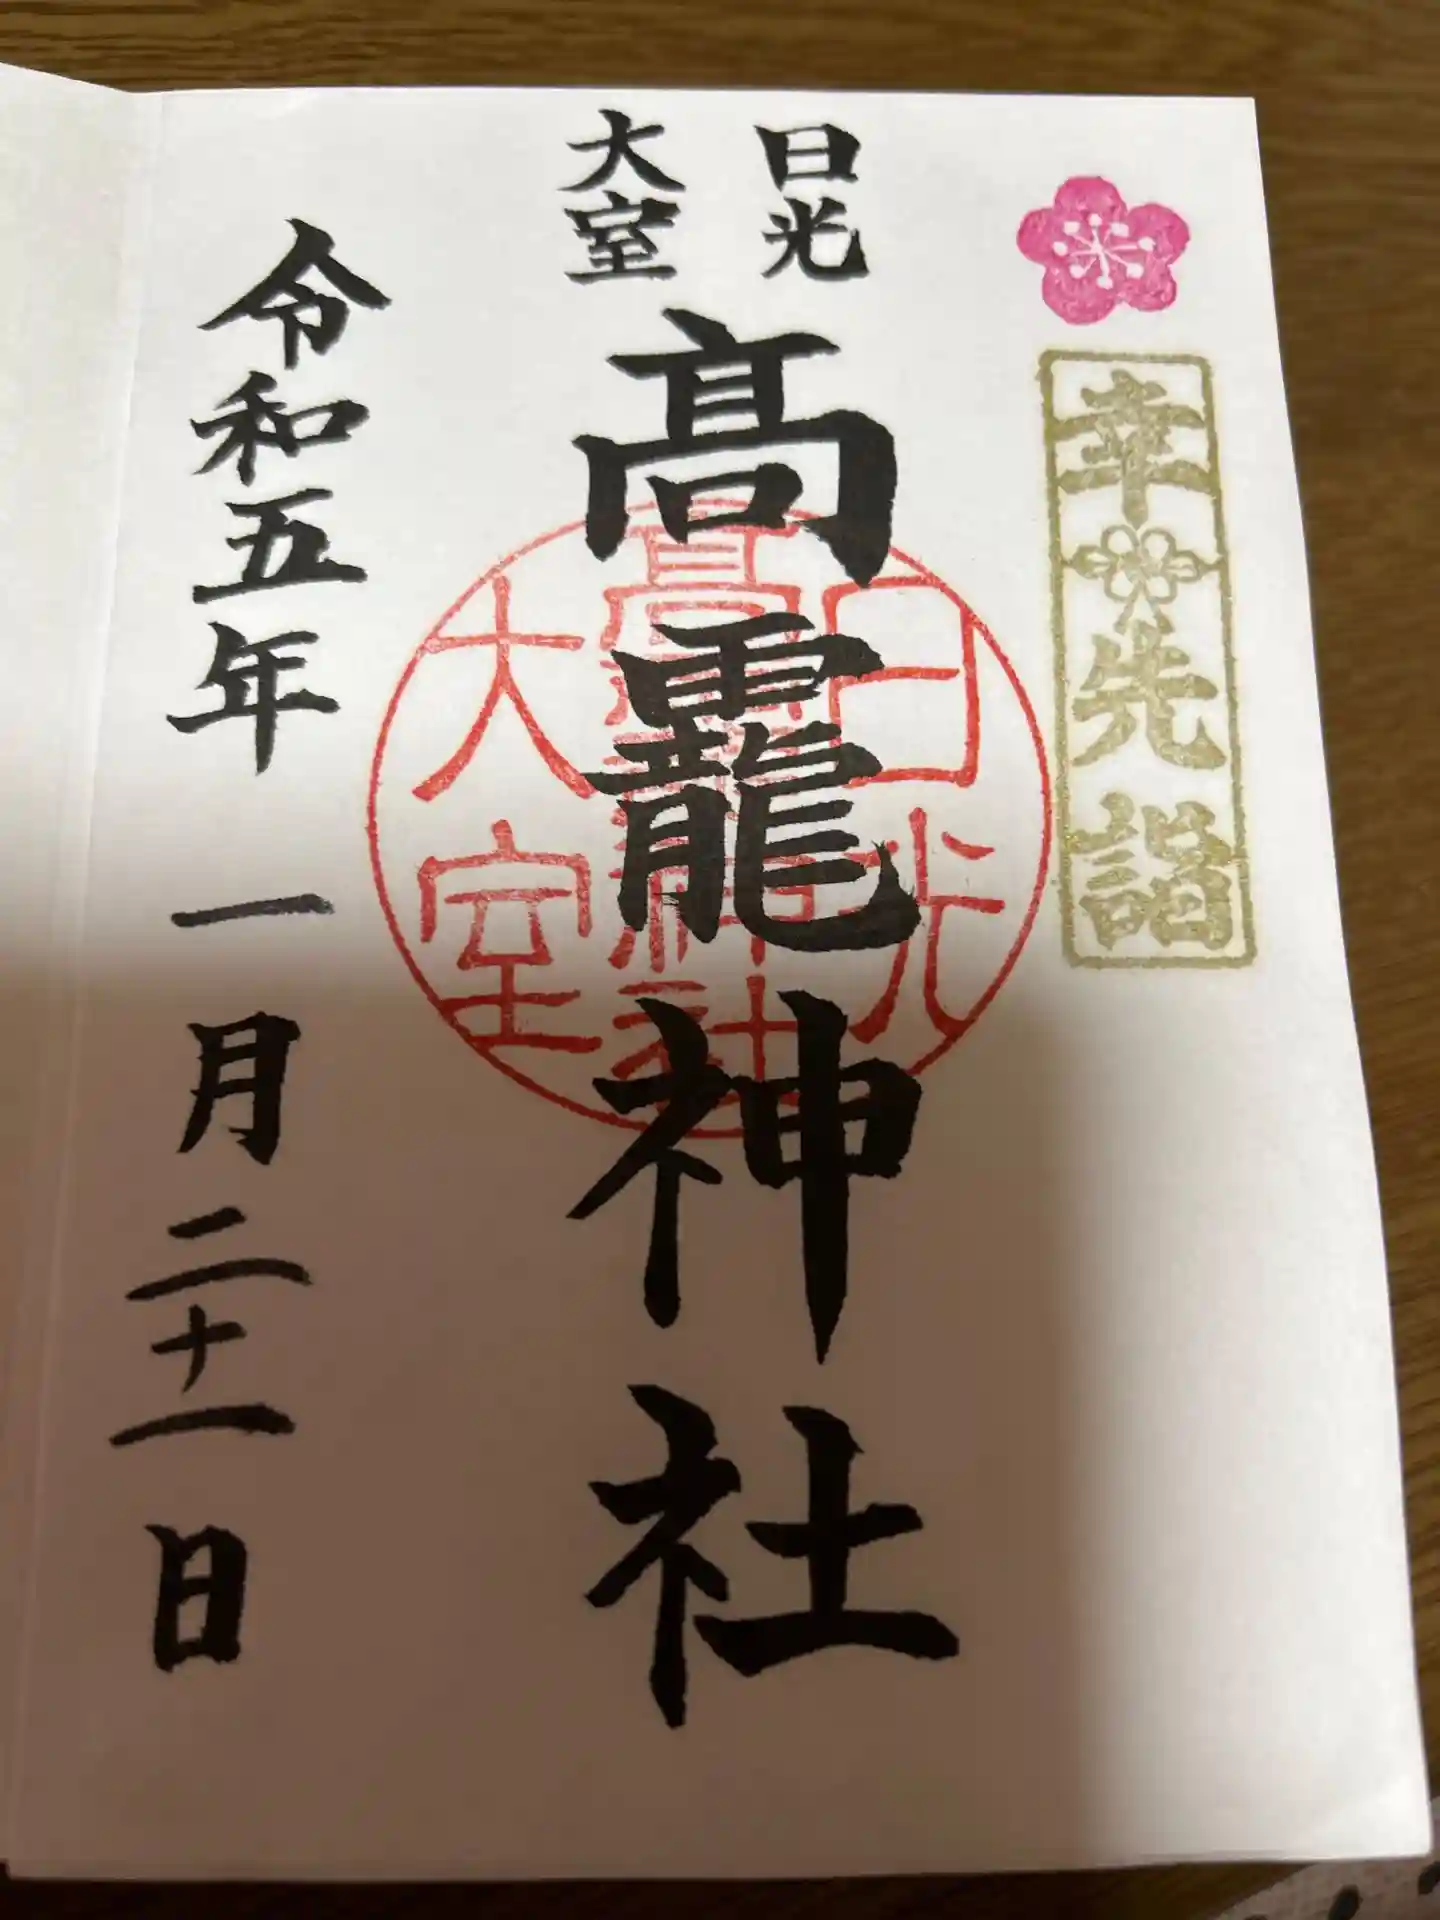 幸先詣
日光
大室
高龗神社
日光
高龗神社
大室
令和五年一月二十一日